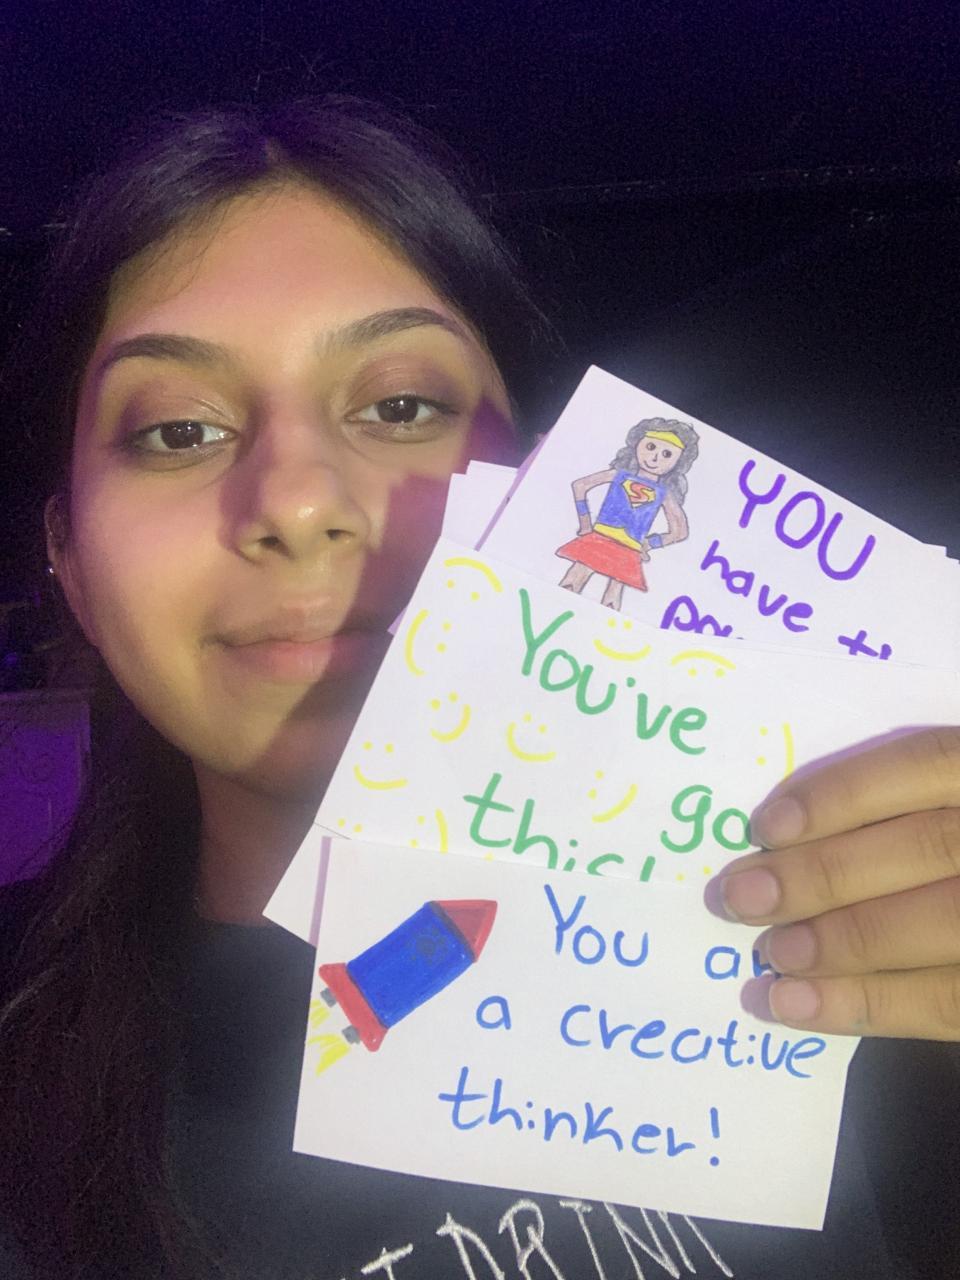 S
YOU
have
You've
go
this!
You a
a creative
thinker!
DRINK